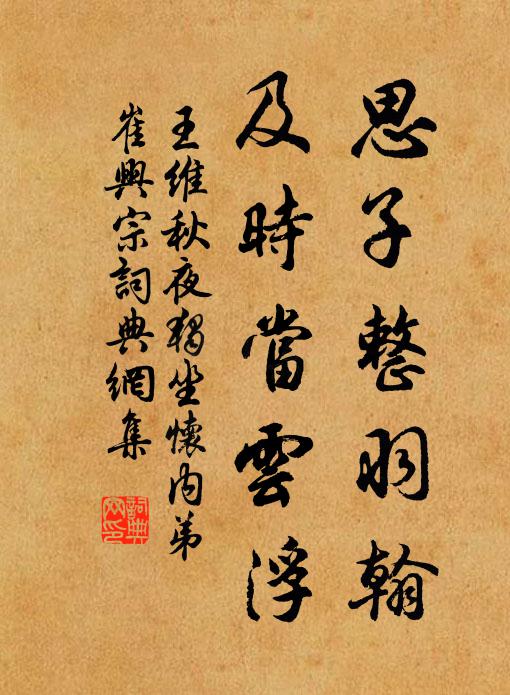 思子整羽翰
及時當雲浮
王維秋夜獨坐懷內弟
崔興宗詞典網集
詞典
网印